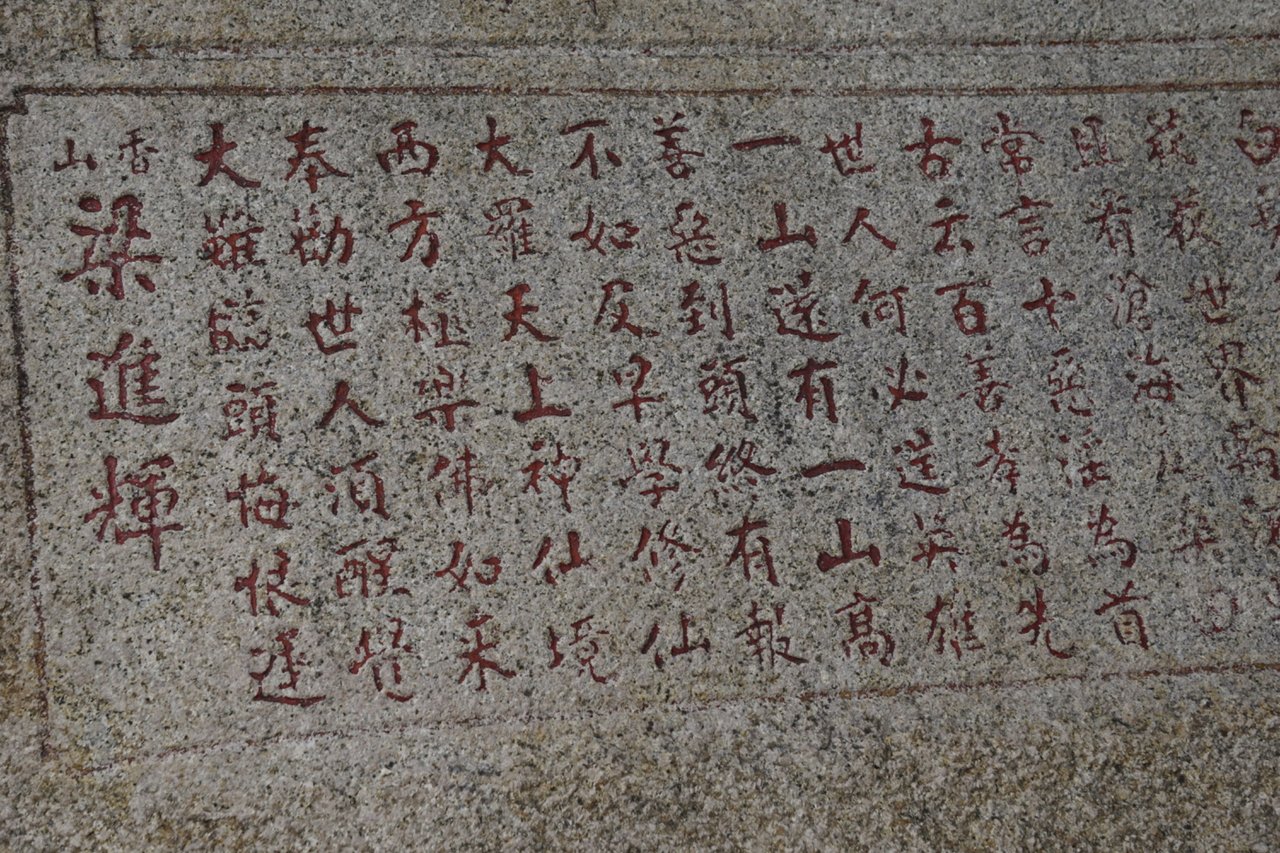 世界
有滄海
常言十惡淫為首
古云百善孝為先
世人何必逞英雄
一山還有一山高
善惡到頭終有報
不如及早學修仙
大羅天上神仙境
西方極樂佛如來
奉勸世人須醒覺
大難臨頭悔恨遲
香山梁進輝